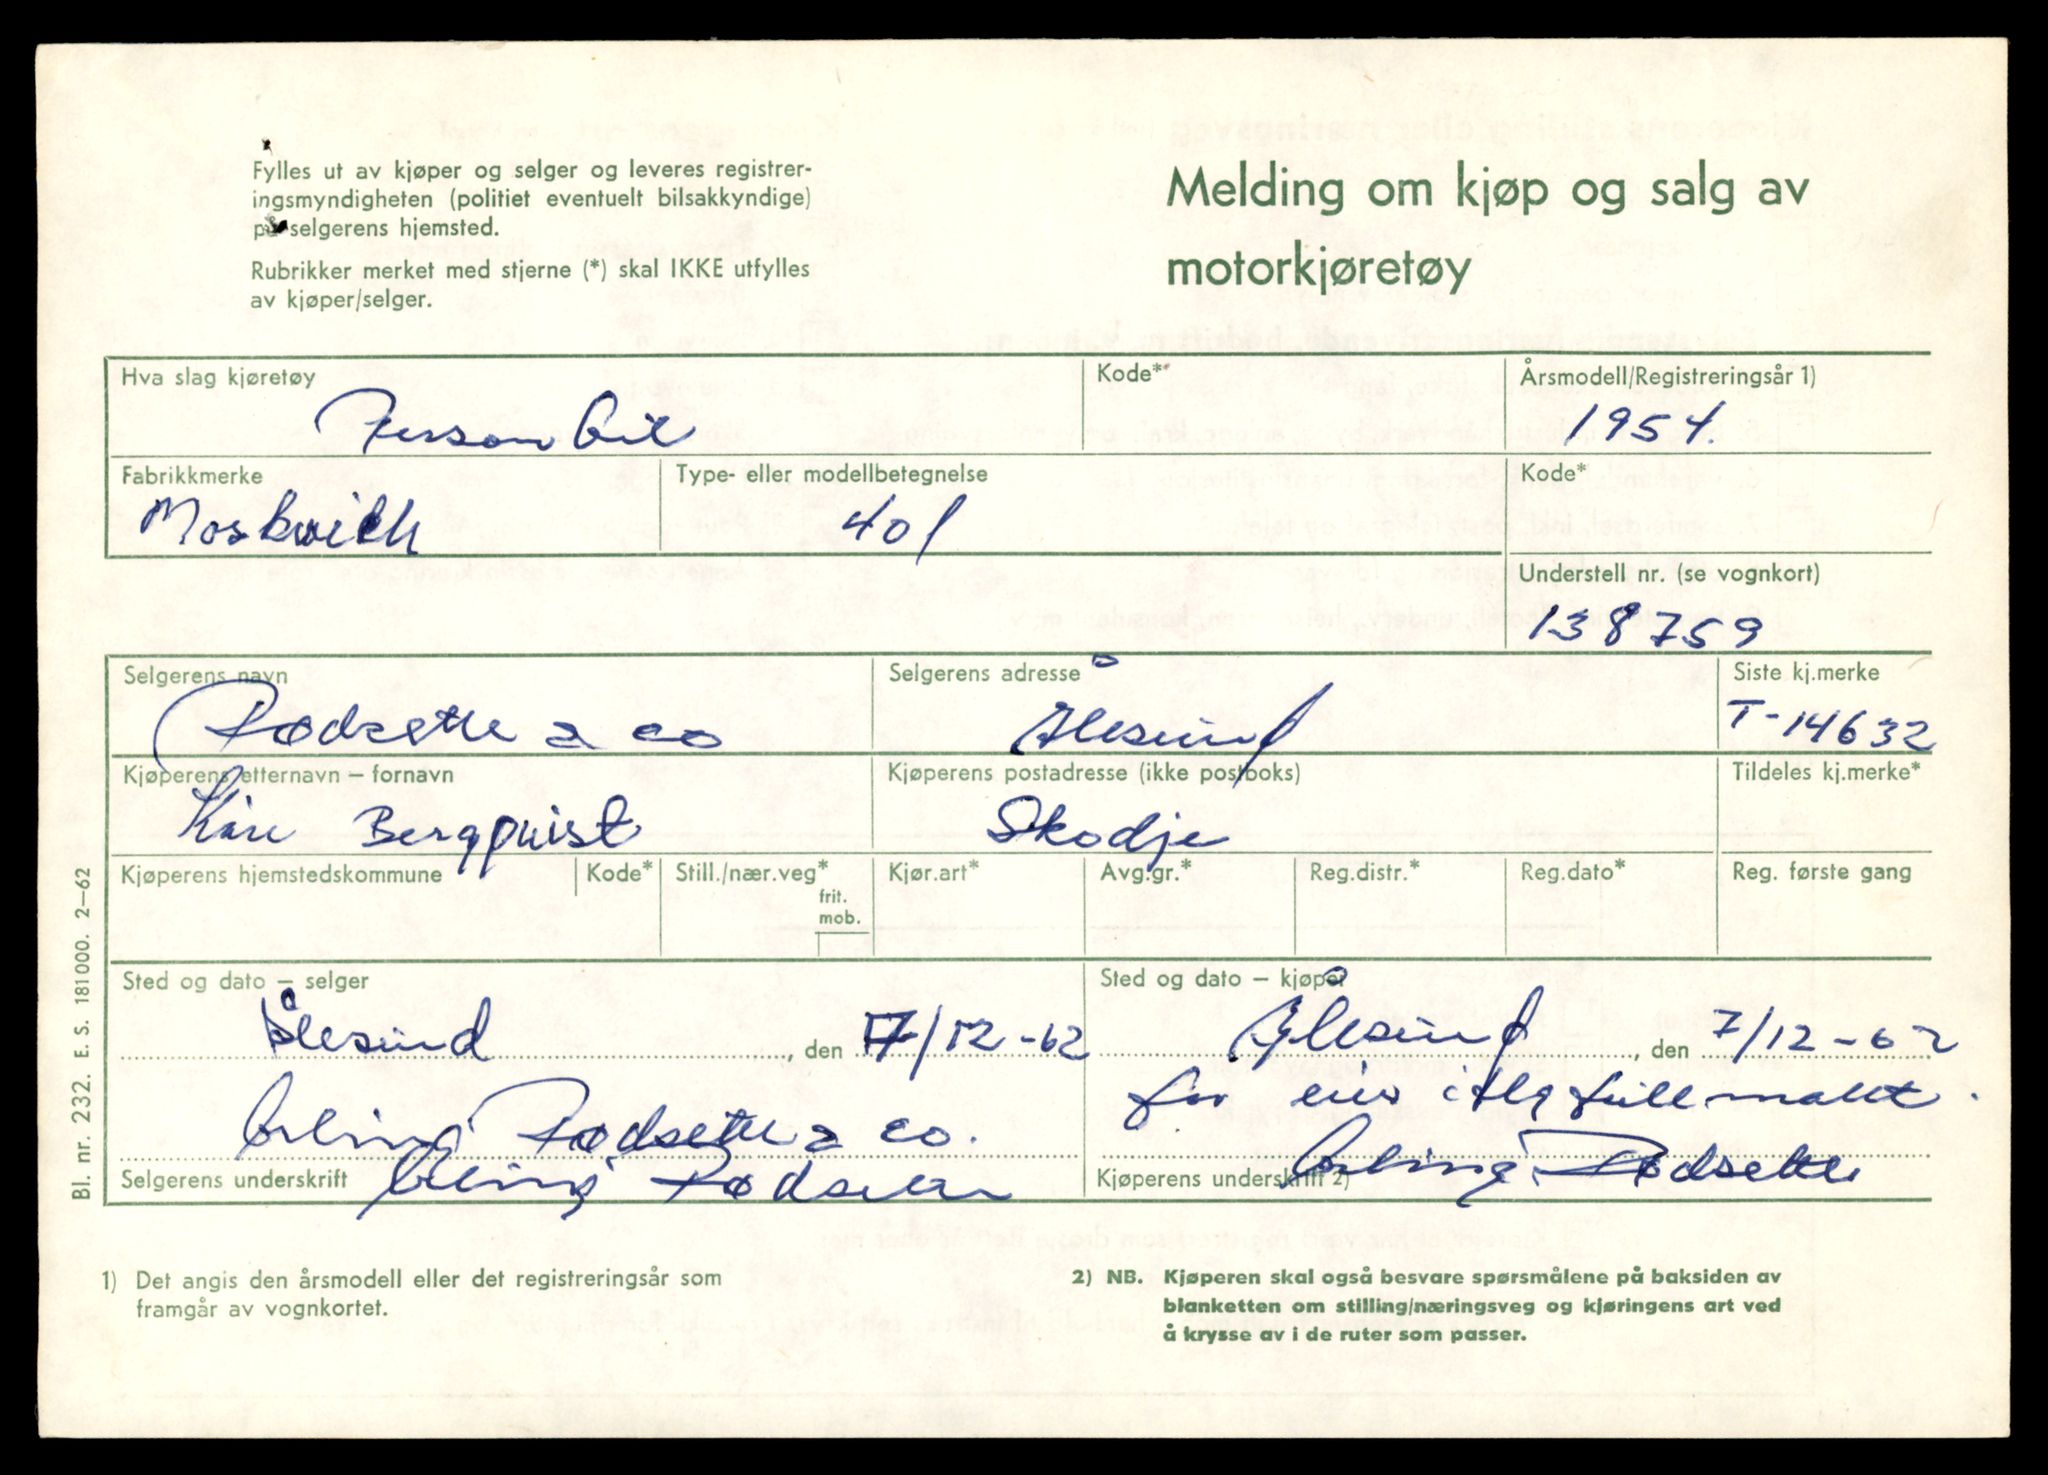 Fylles ut av kjøper og selger og leveres registrer-
ingsmyndigheten (politiet eventuelt bilsakkyndige)
på selgerens hjemsted.
Rubrikker merket med stjerne (*) skal IKKE utfylles
av kjøper/selger.
Melding om kjøp og salg av
motorkjøretøy
Hva slag kjøretøy
Personbil
Kode*
Årsmodell/Registreringsår 1)
1954.
Fabrikkmerke
Moskvich
Type- eller modellbetegnelse
401
Kode*
Understell nr. (se vognkort)
138759
Selgerens navn
Rødsette & co
Selgerens adresse
Ålesund
Siste kj.merke
T-14632
Kjøperens etternavn – fornavn
Kåre Bergqvist
Kjøperens postadresse (ikke postboks)
Skodje
Tildeles kj.merke*
Kjøperens hjemstedskommune
Kode*
Still./nær.veg*
frit.
mob.
Kjør.art*
Avg.gr.*
Reg.distr.*
Reg.dato*
Reg. første gang
Sted og dato – selger
Ålesund, den 7/12-62
Erling Rødsette & co.
Selgerens underskrift Erling Rødsette
Sted og dato – kjøper
Ålesund, den 7/12-62
for fullmakt.
Kjøperens underskrift 2) Erling Rødsette
Bl. nr. 232. E. S. 181000. 2–62
1) Det angis den årsmodell eller det registreringsår som
framgår av vognkortet.
2) NB. Kjøperen skal også besvare spørsmålene på baksiden av
blanketten om stilling/næringsveg og kjøringens art ved
å krysse av i de ruter som passer.